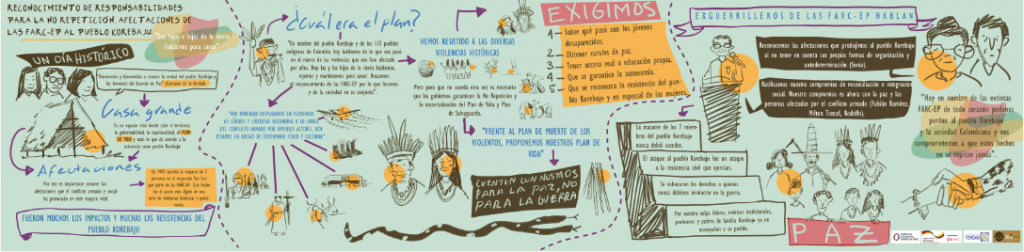 RECONOCIMIENTO DE RESPONSABILIDADES
PARA LA NO REPETICIÓN. AFECTACIONES DE
LAS FARC-EP AL PUEBLO KOREBAJU
"Los hijos e hijas de la tierra,
hablamos para sanar"
UN DÍA HISTÓRICO
Casa grande
Es un espacio vital donde sale el ejercicio,
la gobernabilidad, la espiritualidad, el PLAN
DE VIDA y todo lo que da sentido a la
existencia como pueblo Korebaju
Afectaciones
Por eso es importante conocer las
afectaciones que el conflicto armado y social
ha provocado en este espacio vital.
FUERON MUCHOS LOS IMPACTOS Y MUCHAS LAS RESISTENCIAS DEL
PUEBLO KOREBAJU
¿Cuál era el plan?
"En nombre del pueblo Korebaju y de los 115 pueblos
indígenas de Colombia hoy hablamos de lo que nos pasó
en el marco de las violencias que nos han afectado
por años. Hoy los y los hijos de la tierra hablamos,
injurias y mambeamos para sanar. Buscamos
reconocimiento de las FARC-EP por lo que hicieron
y de la sociedad en su conjunto".
HEMOS RESISTIDO A LAS DIVERSAS
VIOLENCIAS HISTÓRICAS
Pero para que no suceda otra vez es necesario
que los gobiernos garanticen la No Repetición y
la materialización del Plan de Vida y Plan
de Salvaguarda.
"FRENTE AL PLAN DE MUERTE DE LOS
VIOLENTOS, PROPONEMOS NUESTRO PLAN DE
VIDA"
CUENTEN CON NOSTROS
PARA LA PAZ, NO
PARA LA GUERRA
EXIGIMOS
1 Saber qué pasó con los jóvenes
desaparecidos.
2 Obtener curules de paz.
3 Tener acceso real a educación propia.
4 Que se garantice la autonomía.
5 Que se reconozca la resistencia del pue-
blo Korebaju y en especial de las mujeres.
EXGUERRILLEROS DE LAS FARC-EP HABLAN
Reconocemos las afectaciones que produjimos al pueblo Korebaju
al no tener en cuenta sus propias formas de organización y
autodeterminación (Sonia).
Ratificamos nuestro compromiso de reconciliación e integración
social. Nuestro compromiso es ahora con la paz y las
personas afectadas por el conflicto armado (Fabián Ramírez,
Milton Toncel, Rodolfo).
La masacre de los 7 miembros
del pueblo Korebaju
nunca debió suceder.
El ataque al pueblo Korebaju fue un ataque
a la resistencia civil que ejercían.
Se vulneraron los derechos a quienes
nunca debimos involucrar en la guerra.
Por nuestra culpa líderes, médicos tradicionales,
profesores y padres de familia Korebaju ya no
acompañan a su pueblo.
"Hoy en nombre de las extintas
FARC-EP de todo corazón pedimos
perdón al pueblo Korebaju
y la sociedad Colombiana y nos
comprometemos a que estos hechos
no se repitan jamás".
PAZ